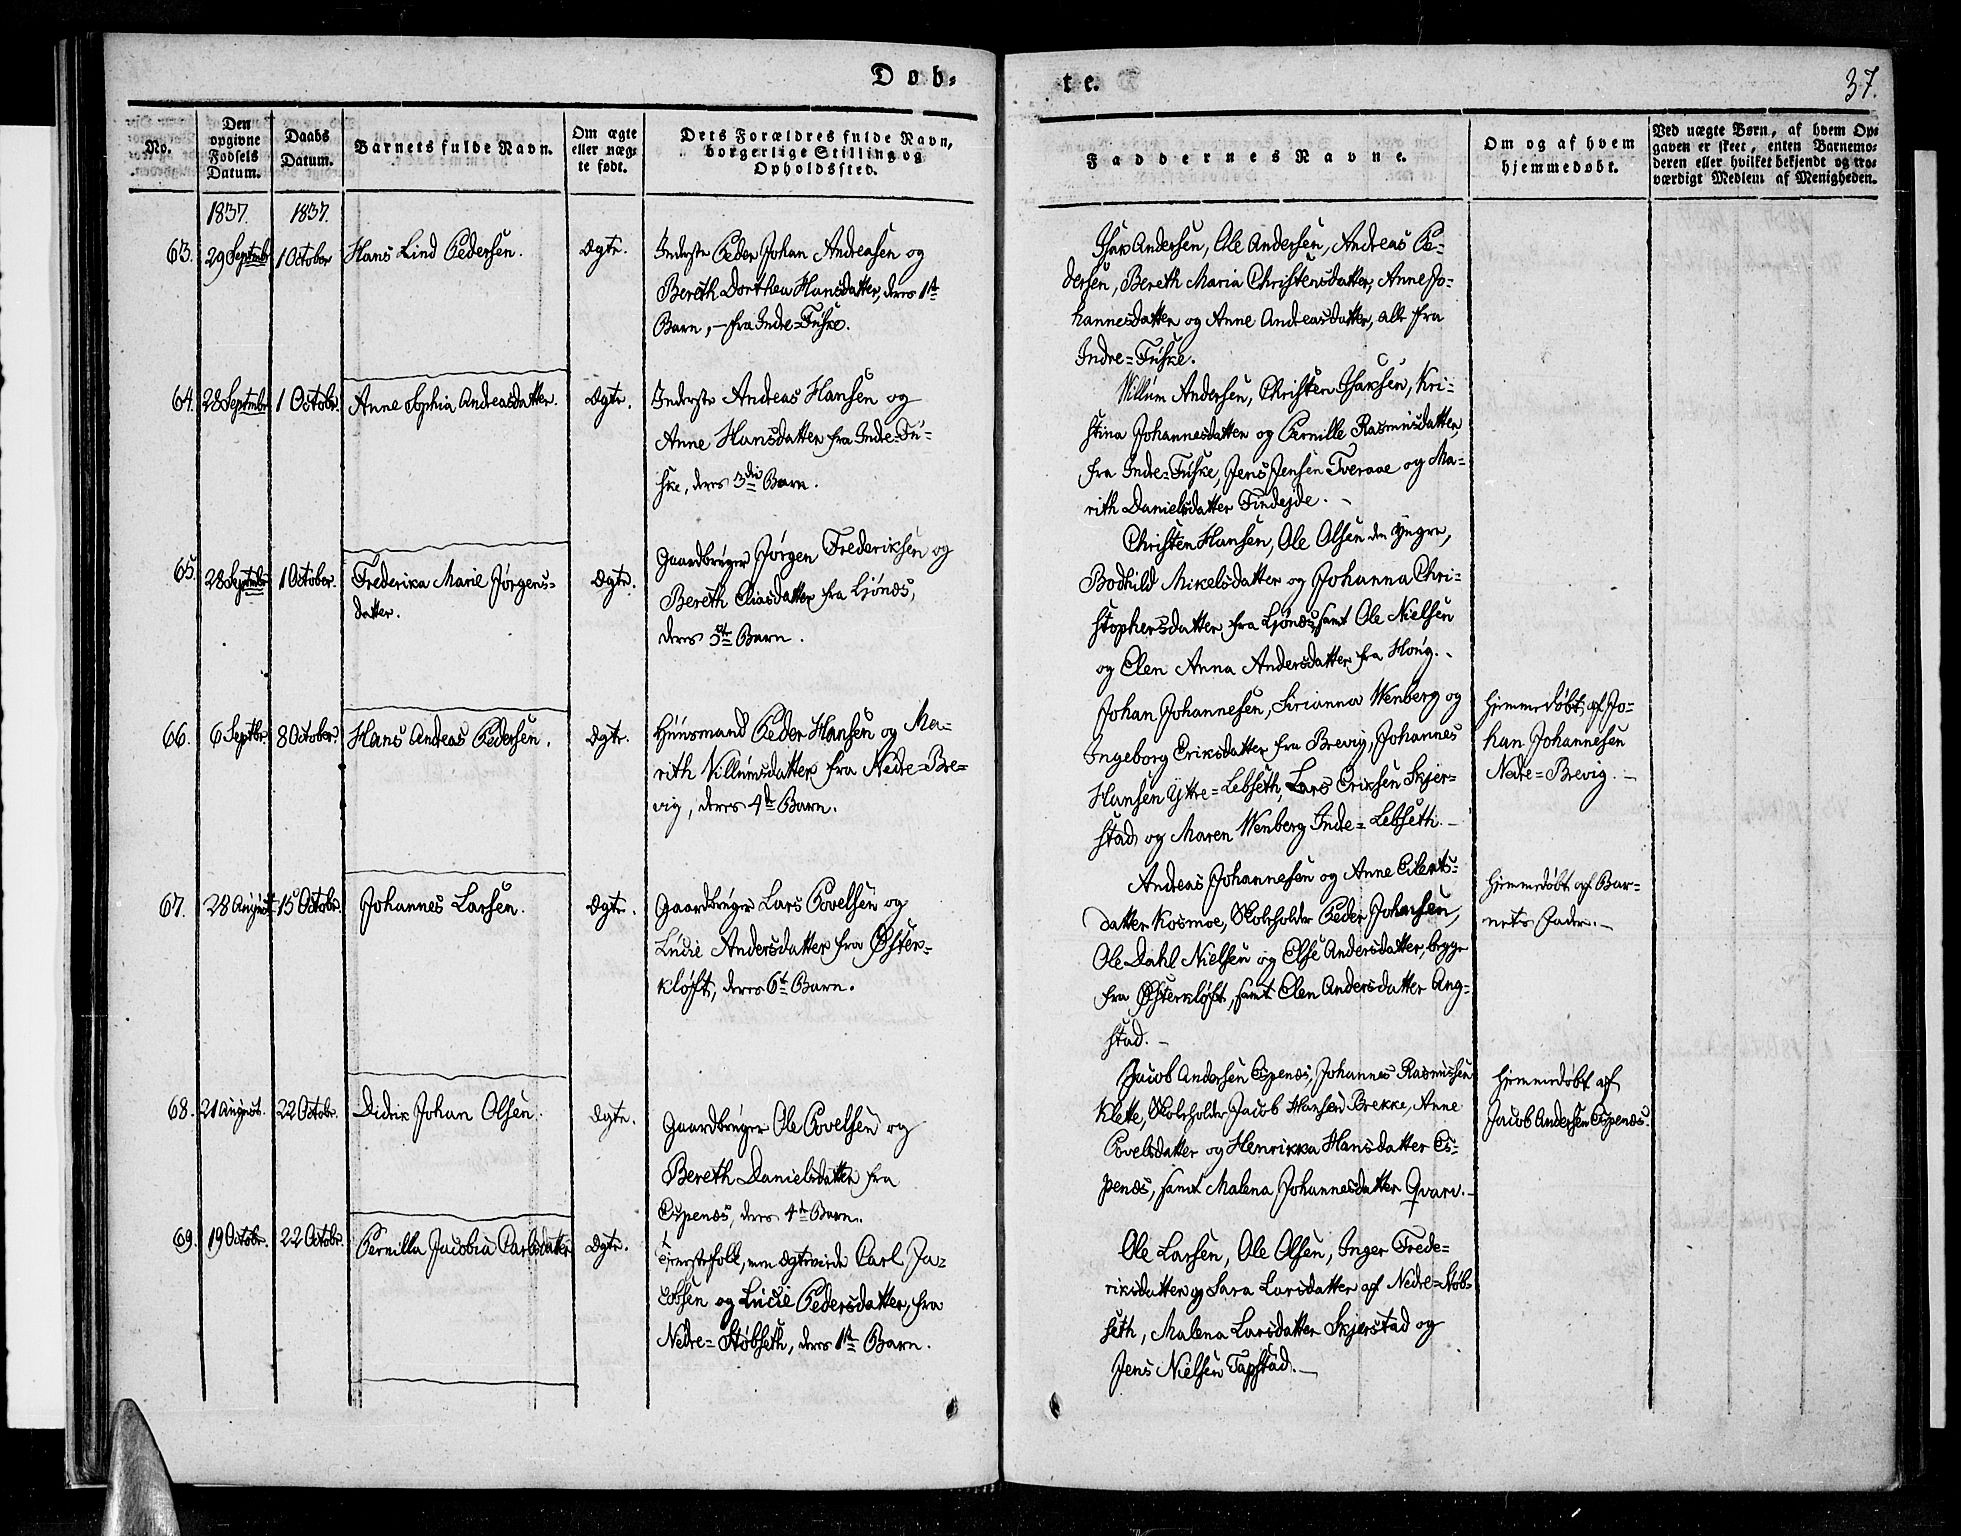 Døb-
te.
37.
No.
Den
opgivne
Fødsels
Datum.
Daabs
Datum.
Barnets fulde Navn.
Om ægte
eller uæg-
te født.
Dets Forældres fulde Navn,
borgerlige Stilling og
Opholdssted.
Faddernes Navne.
Om og af hvem
hjemmedøbt.
Ved uægte Børn, af hvem Op-
gaven er skeet, enten Barnemo-
deren eller hvilket bekjendt og tro-
værdigt Medlem af Menigheden.
1837. 1837.
63. 29 Septembr 1 October Hans Lind Pedersen. Ægte.
Inderste Peder Johan Andreasen og
Bereth Dorthea Hansdatter, deres 1ste
Barn, - fra Indre=Fuske.
Isak Andersen, Ole Andersen, Andreas Pe-
dersen, Bereth Maria Christensdatter, Anne Jo-
hannesdatter og Anne Andreasdatter, alle fra
Indre=Fuske.
64. 28 Septembr 1 Octobr. Anne Sophia Andreasdatter. Ægte.
Inderste Andreas Hansen og
Anne Hansdatter fra Indre=Fu-
ske, deres 3die Barn.
Villum Andersen, Christen Isaksen, Kri-
stina Johannesdatter og Pernille Rasmusdatter
fra Indre=Fuske, Jens Jensen Tveraae og Ma-
rith Danielsdatter Findejde. -
65. 28 Septembr 1 October. Frederika Marie Jørgens-
datter. Ægte.
Gaardbruger Jørgen Frederiksen og
Bereth Eliasdatter fra Ljønes,
deres 5te Barn.
Christen Hansen, Ole Olsen den Yngre,
Bodhild Mikelsdatter og Johanna Chri-
stophersdatter fra Ljønes, samt Ole Nielsen
og Elen Anna Andersdatter fra Høug.
66. 6 Septbr. 8 October. Hans Andreas Pedersen. Ægte.
Huusmand Peder Hansen og Ma-
rith Villumsdatter fra Nedre=Bre-
vig, deres 4de Barn.
Johan Johannesen, Sirianna Wenberg og
Ingeborg Eriksdatter fra Brevig, Johannes
Hansen Yttre=Lebseth, Lars Eriksen Skjer-
stad og Maren Wenberg Inde=Lebseth. -
Hjemmedøbt af Jo-
han Johannesen
Nedre=Brevig. -
67. 28 August 15 Octobr. Johannes Larsen. Ægte.
Gaardbruger Lars Povelsen og
Lucie Andersdatter fra Øster-
kløft, deres 6te Barn.
Andreas Johannesen og Anne Eilerts-
datter Kosmoe, Skoleholder Peder Johnsen,
Ole Dahl Nielsen og Else Andersdatter, begge
fra Østerkløft, samt Elen Andersdatter Ang-
stad. -
Hjemmedøbt af Bar-
nets Fader. -
68. 21 August. 22 Octobr. Didrik Johan Olsen. Ægte.
Gaardbruger Ole Povelsen og
Bereth Danielsdatter fra
Espenes, deres 4de Barn.
Jacob Andersen Espenes, Johannes Rasmussen
Klette, Skoleholder Jacob Hansen Brekke, Anne
Povelsdatter og Henrikka Hansdatter Es-
penes, samt Malena Johannesdatter Qvarv. -
Hjemmedøbt af
Jacob Andersen Espenes.
69. 19 Octobr. 22 Octobr. Pernilla Jacobia Carlsdatter Ægte.
Tjenestefolk, men Ægteviede Carl Ja-
cobsen og Lucie Pedersdatter, fra
Nedre=Støbseth, deres 1ste Barn.
Ole Larsen, Ole Olsen, Inger Frede-
riksdatter og Sara Larsdatter af Nedre=Støb-
seth, Malena Larsdatter Skjerstad og
Jens Nielsen. -